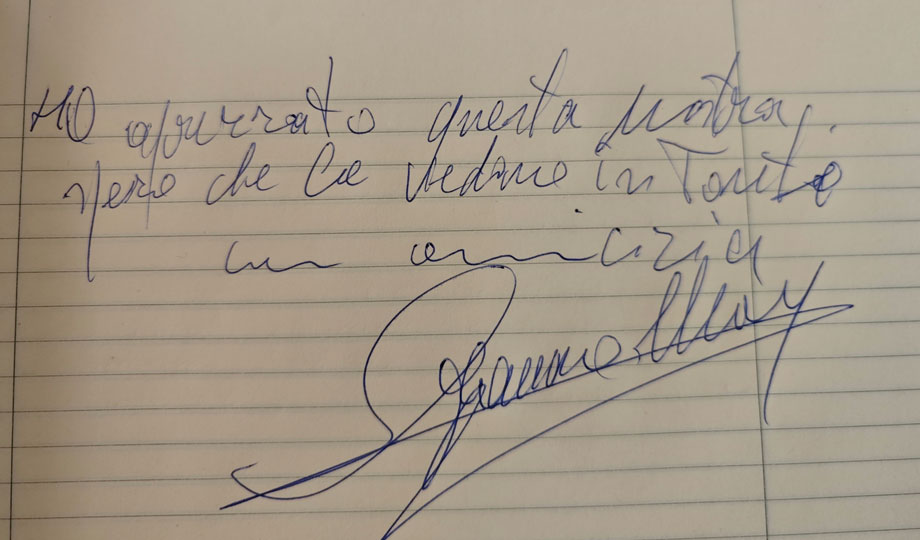 Ho apprezzato questa mostra.
Spero che la vedano in Tanti
con amicizia